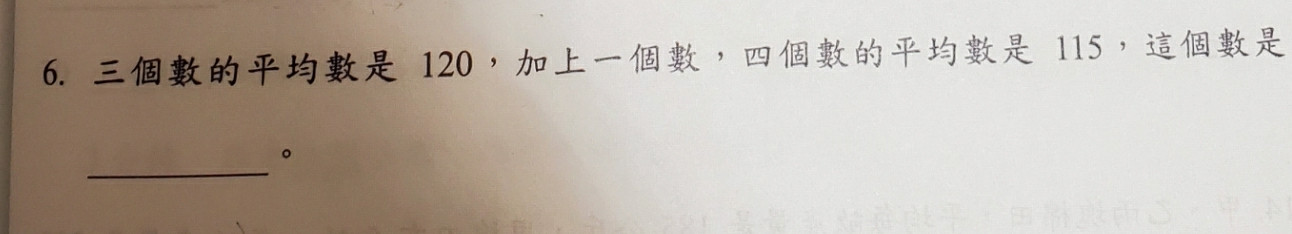 6. 三個數的平均數是 120，加上一個數，四個數的平均數是 115，這個數是
________。